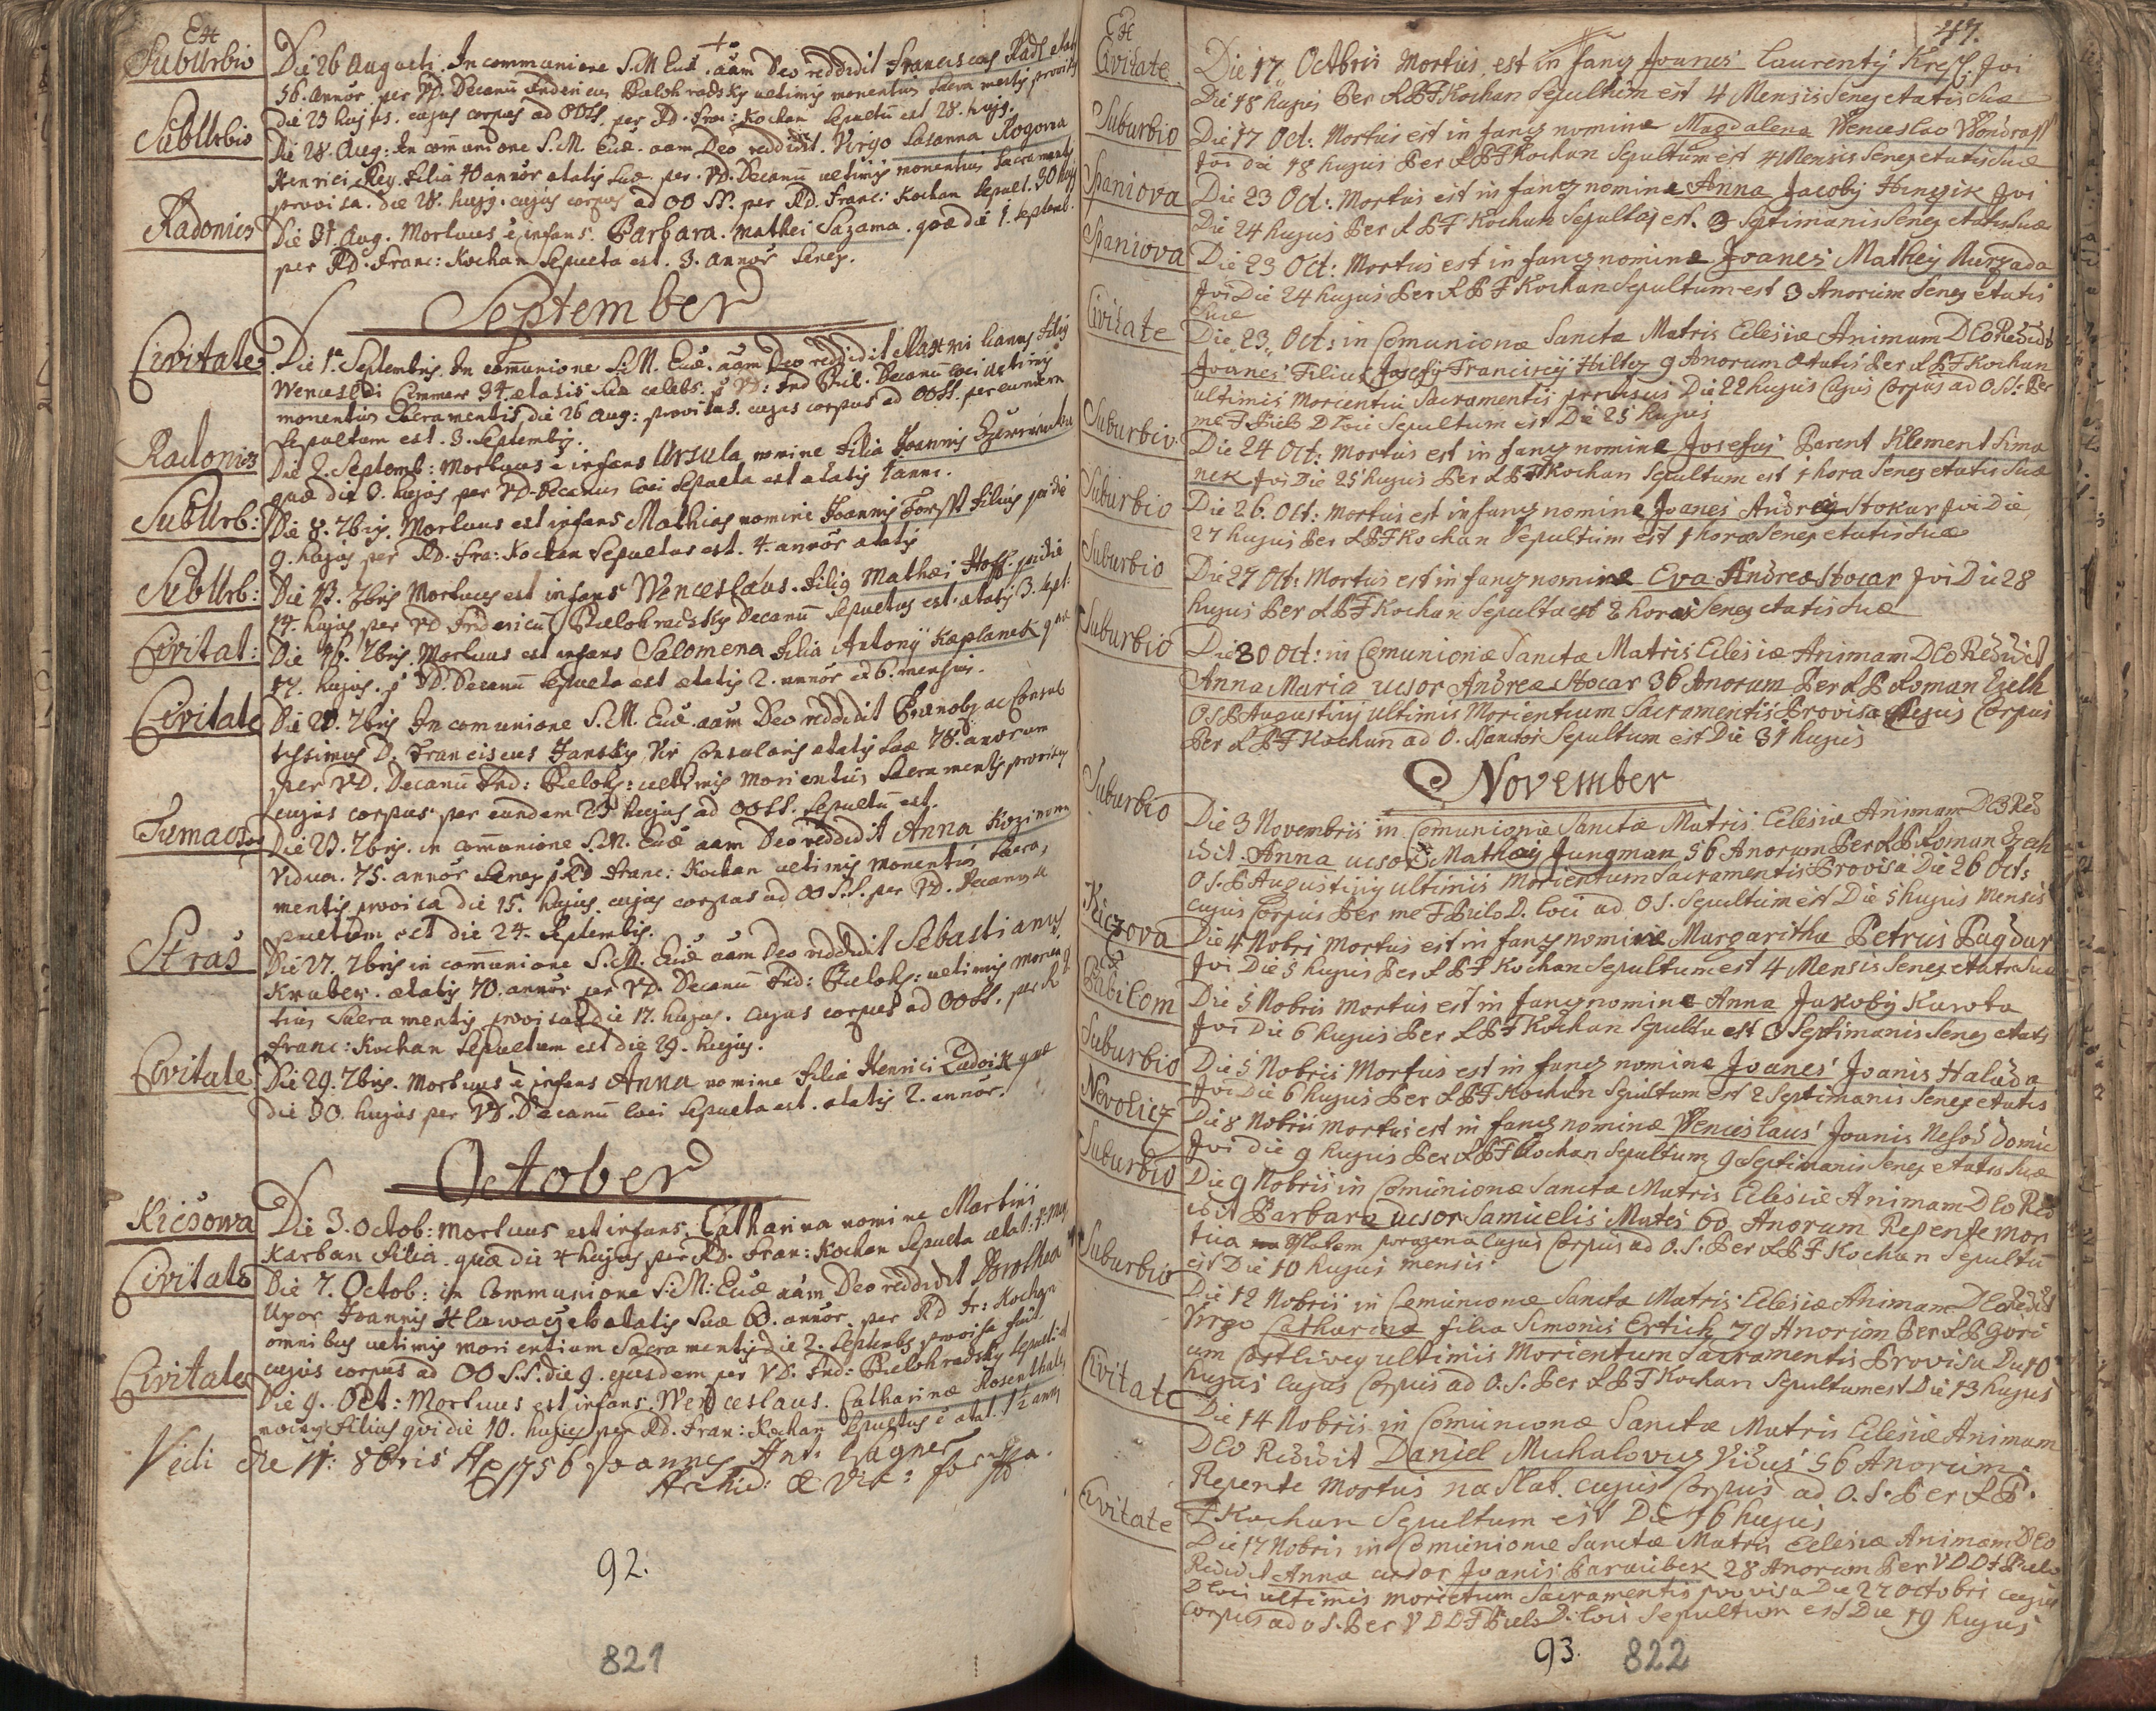 Ex
Suburbio
Die 26 Augusti. In communione S. M. Eccl. aam Deo reddidit Franciscus Radl
56. annor. per VD. Decanum ultimis Sacramentis provisus
die 23 hujus. cujus corpus ad OOSS. per RD. Franc: Kochan Sepultu est 28. hujg.
Suburbio
Die 28. Aug: In communione S. M. Eccl. aam Deo reddidit. Virgo Susanna Rogowa
Henrici Reg. filia 40 annor ætatis suæ per. VD. Decanu ultimis
provisa. die 28. hujg. cujus corpus ad OO SS. per RD. Franc: Kochan Sepult. 30 hujg
Radonics
Die 31. Aug. Mortuus e infans. Barbara. Mathei Sazama. quæ die 1. Septemb.
per RD. Franc: Kochan Sepulta est. 3. annor Senex.
September
Civitate
Die 1. Septembris. In comunione S. M. Eccl. aam Deo reddidit
Wenceslai 34. ætatis suæ cælebs. VD: Decanu loci ultimis
Sacramentis die 26 Aug: provisus. cujus corpus ad OOSS. per eundem
Sepultum est. 3. Septembris.
Radonics
Die 2. Septemb: Mortuus e infans Ursula nomine filia Joannis
quæ die 3. hujus per VD. Decanum loci Sepulta est ætatis 1 anni.
Suburb:
Die 8. 7bris. Mortuus est infans Mathias nomine Joannis Forst filius
9. hujus per RD. Fra: Kochan Sepultus est. 4. annor ætatis
Suburb:
Die 13. 7bris Mortuus est infans Wenceslaus. filig Mathæi Hoff.
14. hujus per VD Fridericu Bielohradsky Decanu Sepultus est. ætatis 3. Sept:
Civitat:
Die 7bris. Mortuus est infans Salomena filia Antonij Kaplanek quæ
17. hujus. VD. Decanu Sepulta est ætatis 2. annor et 6. mensium.
Civitate
Die 7bris In comunione S. M. Eccl. aam Deo reddidit
D. Franciscus Jansky Vir Consularis ætatis suæ 78. annorum
per VD. Decanu Frid: Bieloh: ultimis Morientium Sacramentis provisus
cujus corpus per eundem 23 hujus ad OOSS. Sepultu est.
Die 23. 7bris. in communione S. M. Eccl aam Deo reddidit Anna
Vidua. 75. annor Senex RD Franc: Kochan ultimis Sacra,
mentis provisa die 15. hujus. cujus corpus ad OO S.S. per VD. Decanum
Sepultum est die 24. Septembris.
Stras
Die 27. 7bris in comunione S. M. Eccl aam Deo reddidit Sebastianus
Kruber. ætatis 70. annor per VD. Decanu Frid: Bieloh: ultimis
Sacramentis provisus die 17. hujus. cujus corpus ad OOSS. per R
Franc: Kochan Sepultum est die 29. hujus.
Civitate
Die 29. 7bris. Mortuus e infans Anna nomine filia Henrici Ladvik quæ
die 30. hujus per VD. Decanu loci Sepulta est. ætatis 2. annor.
October
Kicsowa
Die 3. Octob: Mortuus est infans. Catharina nomine Martini
Karban filia. quæ die 4 hujus per RD. Fran: Kochan Sepulta ætat:
Civitate
Die 7. Octob: in Communione S. M. Eccl aam Deo reddidit Dorothea
Uxor Joannis ætatis suæ annor. per RD Fr: Kochan
omnibus ultimis morientium Sacramentis die 2. Septembris provisa fuit
cujus corpus ad OO S.S. die 9. ejusdem per VD: Frid: Bielohradsky
Civitate
Die 9. Oct: Mortuus est infans. Wenceslaus. Catharinæ
filius qvi die 10. hujus per RD. Fran: Kochan Sepultus e ætat. 1½ anni
Vidi die 11: 8bris Ao 1756 Joannes Ant: Wagner
Archid: & Vic: for
92.
821
47.
Ex
Civitate
Die 17 Octbris Mortus est in fans Joanes Laurentij Kresl qvi
Die 18 hujus Per R P F Kochan Sepultum est 4 Mensis Senex etatis Suæ
Suburbio
Die 17 Oct: Mortus est in fans nomine Magdalena Wenceslao Wondrass
qvi die 18 hujus Per R P F Kochan Sepultum est 4 Mensis Senex etatis Suæ
Spaniova
Die 23 Oct: Mortus est in fans nomine Anna Jacobij qvi
Die 24 hujus Per R P F Kochan Sepultus est 3 Septimanis Senex etatis Suæ
Spaniova
Die 23 Oct: Mortus est in fans nomine Joanes Mathey
qvi Die 24 hujus Per R P F Kochan Sepultum est 3 Anorum Senex etatis
Suæ
Civitate
Die 23 Oct: in Comunionæ Sancta Matris Eclesiæ Animam DEO Redidit
Joanes Filius Josefy Francisci Hiltes 9 Anorum ætatis Per R P F Kochan
ultimis Morientiu Sacramentis provisus Die 22 hujus Cujus Corpus ad O. S: Per
me F Bielo D Loci Sepultum est Die 25 hujus
Suburbio
Die 24 Oct: Mortus est in fans nomine Josefus Parent Klement Sima
nek qvi Die 25 hujus Per R P F Kochan Sepultum est 1 hora Senex etatis Suæ
Suburbio
Die 26. Oct: Mortus est in fans nomine Joanes Andreg Stokar qvi Die
27 hujus Per R P F Kochan Sepultum est 1 hora Senex etatis Suæ
Suburbio
Die 27 Oct: Mortus est in fans nomine Eva Andreæ Stocar qvi Die 28
hujus Per R P F Kochan Sepulta est 2 horas Senex etatis Suæ
Suburbio
Die 30 Oct: in Comunionæ Sanctæ Matris Eclesiæ Animam DEO Redidit
Anna Maria ucsor Andreæ Stocar 36 Anorum Per R P Roman
O S P Augustinj ultimis Morientium Sacramentis Provisa Cujus Corpus
Per R P F Kochan ad O. Sanctos Sepultum est Die 31 hujus
November
Suburbio
Die 3 Novembris in Comunioniæ Sanctæ Matris Eclesiæ Animam DEO Red
idit. Anna ucsor Mathey Jungman 56 Anorum Per R P Roman
O S. P Augustinij ultimis Morientum Sacramentis Provisa Die 26 Oct:
Cujus Corpus Per me F Bielo D. loci ad O S. Sepultum est Die 5 hujus Mensis
Kiczova
Die 4 Nobri Mortus est in fans nomine Margaritha Petrus
qvi Die 5 hujus Per R P F Kochan Sepultum est 4 Mensis Senex etatis Suæ
Ex
Babilom
Die 5 Nobris Mortus est in fans nomine Anna Jakobij
qvi Die 6 hujus Per R P F Kochan Sepulta est 3 Septimanis Senex etatis
Suburbio
Die 5 Nobris Mortus est in fans nomine Joanes Joanis Haluda
qvi Die 6 hujus Per R P F Kochan Sepultum est 2 Septimanis Senex etatis
Nevolicz
Die 8 Nobris Mortus est in fans nominæ Wenceslaus Joanis
qvi die 9 hujus Per R P F Kochan Sepultum 9 Septimanis Senex etatis Suæ
Suburbio
Die 9 Nobris in Comunionæ Sancta Matris Eclesiæ Animam DEO Red
idit Barbara ucsor Samuelis Mates 60 Anorum Repente Mor
tua Cujus Corpus ad O. S. Per R P F Kochan Sepultu
est Die 10 hujus mensis
Suburbio
Die 12 Nobris in Comunionæ Sanctæ Matris Eclesiæ Animam DEO Redidit
Virgo Catharina filia Simonis Ertich 79 Anorum Per R P
um ultimis Morientum Sacramentis Provisa Die 10
hujus Cujus Corpus ad O. S. Per R P F Kochan Sepultum est Die 13 hujus
Civitate
Die 14 Nobris in Comunionæ Sanctæ Matris Eclesiæ Animam
DEO Redidit Daniel Muhalovus Vidus 56 Anorum.
Repente Mortus na Slat. cujus Corpus ad O. S. Per R P.
F Kochan Sepultum est Die 16 hujus
Civitate
Die 17 Nobris in Comunionæ Sanctæ Matris Eclesiæ Animam DEO
Redidit Anna ucsor Joanis 28 Anorum Per V D D F Bielo
D loci ultimis morietum Sacramentis provisa Die 27 Octobri cujus
Corpus ad O S. Per V D D F Bielo D. loci Sepultum est Die 19 hujus
93.
822